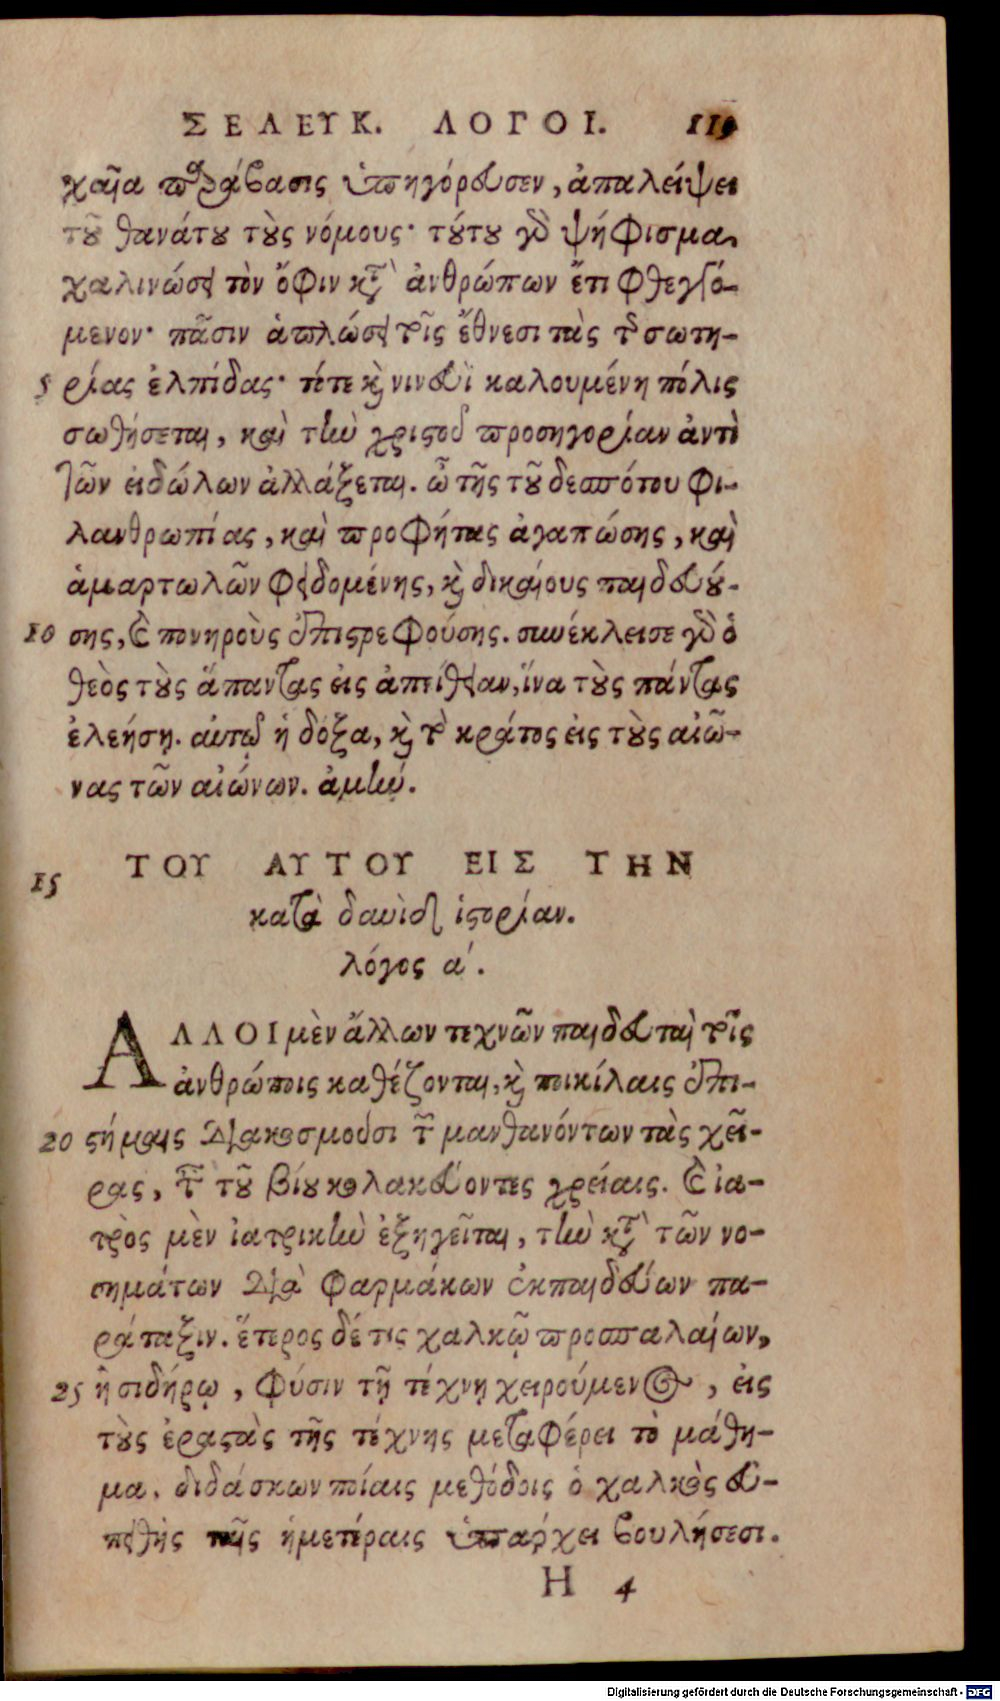 ΣΕΛΕΥΚ. ΛΟΓΟΙ. 119
χαία παράβασις ὑπηγόρευσεν, ἀπαλείψει
τοῦ θανάτου τοὺς νόμους· τούτου γὰρ ψήφισμα
χαλινώσει τὸν ὄφιν κατὰ ἀνθρώπων ἔτι φθεγγό-
μενον· πᾶσιν ἁπλώσει τοῖς ἔθνεσι τὰς τῆς σωτη-
5 ρίας ἐλπίδας· τότε καὶ νινευὶ καλουμένη πόλις
σωθήσεται, καὶ τὴν χριστοῦ προσηγορίαν ἀντὶ
τῶν εἰδώλων ἀλλάξεται. ὦ τῆς τοῦ δεσπότου φι-
λανθρωπίας, καὶ προφήτας ἀγαπώσης, καὶ
ἁμαρτωλῶν φειδομένης, καὶ δικαίους παιδευού-
10 σης, καὶ πονηροὺς ἐπιστρεφούσης. συνέκλεισε γὰρ ὁ
θεὸς τοὺς ἅπαντας εἰς ἀπείθειαν, ἵνα τοὺς πάντας
ἐλεήσῃ. αὐτῷ ἡ δόξα, καὶ τὸ κράτος εἰς τοὺς αἰῶ-
νας τῶν αἰώνων. ἀμήν.
15 ΤΟΥ ΑΥΤΟΥ ΕΙΣ ΤΗΝ
κατὰ δαυὶδ ἱστορίαν.
λόγος α΄.
ΑΛΛΟΙ μὲν ἄλλων τεχνῶν παιδευταὶ τοῖς
ἀνθρώποις καθέζονται, καὶ ποικίλαις ἐπι-
20 στήμαις διακοσμοῦσι τῶν μανθανόντων τὰς χεῖ-
ρας, τὰς τοῦ βίου κολακεύοντες χρείαις. καὶ ἰα-
τρὸς μὲν ἰατρικὴν ἐξηγεῖται, τὴν κατὰ τῶν νο-
σημάτων διὰ φαρμάκων ἐκπαιδεύων πα-
ράταξιν. ἕτερος δέ τις χαλκῷ προσπαλαίων,
25 ἢ σιδήρῳ, φύσιν τῇ τέχνῃ χειρούμενος, εἰς
τοὺς ἐραστὰς τῆς τέχνης μεταφέρει τὸ μάθη-
μα. διδάσκων ποίαις μεθόδοις ὁ χαλκὸς εὐ-
πειθὴς ταῖς ἡμετέραις ὑπάρχει βουλήσεσι.
H 4
Digitalisierung gefördert durch die Deutsche Forschungsgemeinschaft - DFG